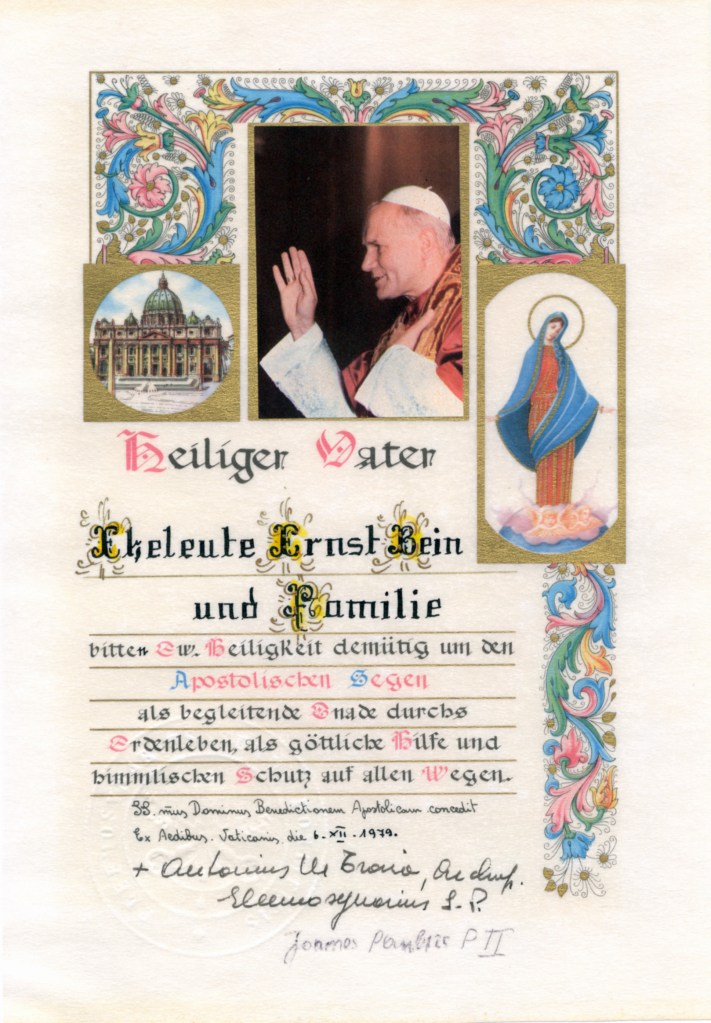 Heiliger Vater
Eheleute Ernst Bein
und Familie
bitten Ew. Heiligkeit demütig um den
Apostolischen Segen
als begleitende Gnade durchs
Erdenleben, als göttliche Hilfe und
himmlischen Schutz auf allen Wegen.
SS. m̃us Dominus Benedictionem Apostolicam concedit
Ex Aedibus. Vaticanis, die 6-XII-1979.
+ Antonius M Travia, Archiep.
Eleemosynarius S.P.
Joannes P II